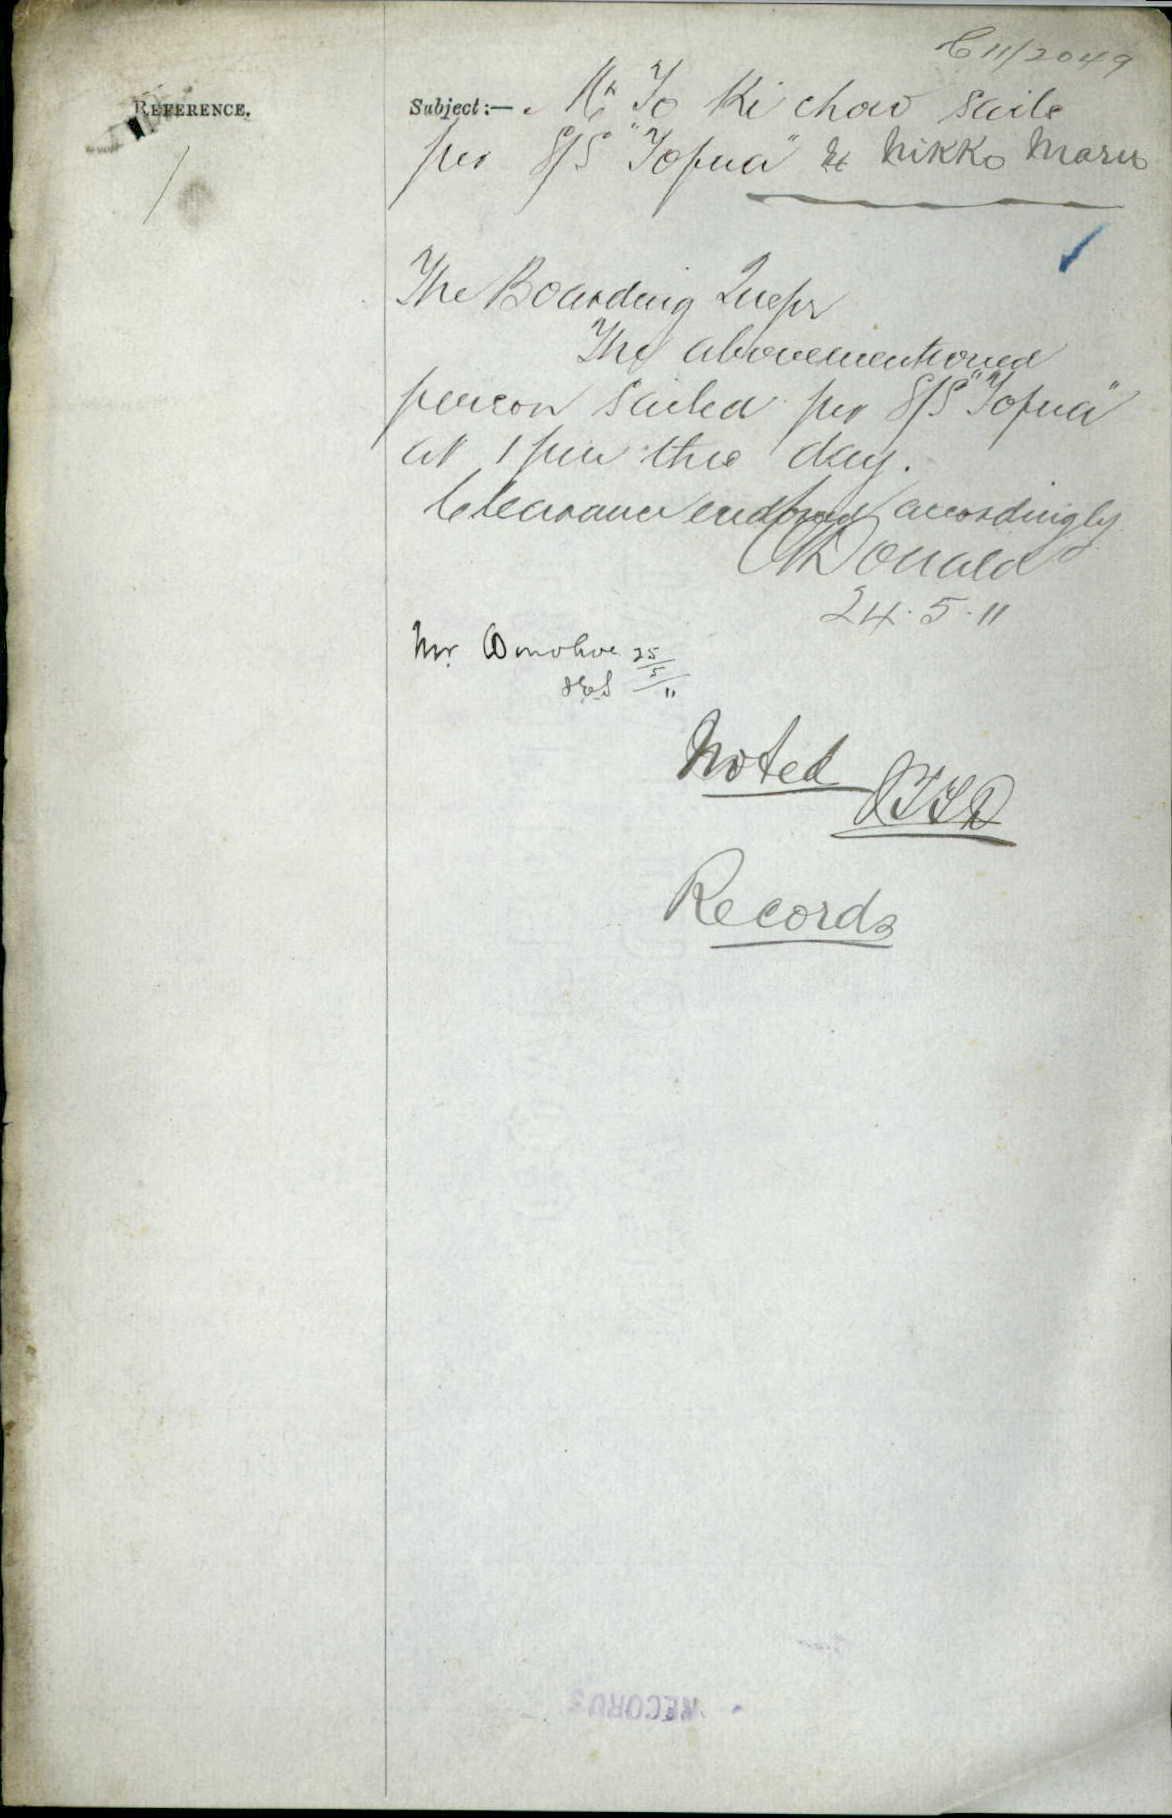 C11/2049
REFERENCE.
Subject:— Mr To Ki chow sails
per S/S "Tofua" Ex Nikko Maru
The Boarding Inspr
The abovementioned
person sailed per S/S "Tofua"
at 1 pm this day.
Clearance endorsed accordingly
Donald
24.5.11
Mr. Donohoe 25/5/11
Noted
Records
RECORDS